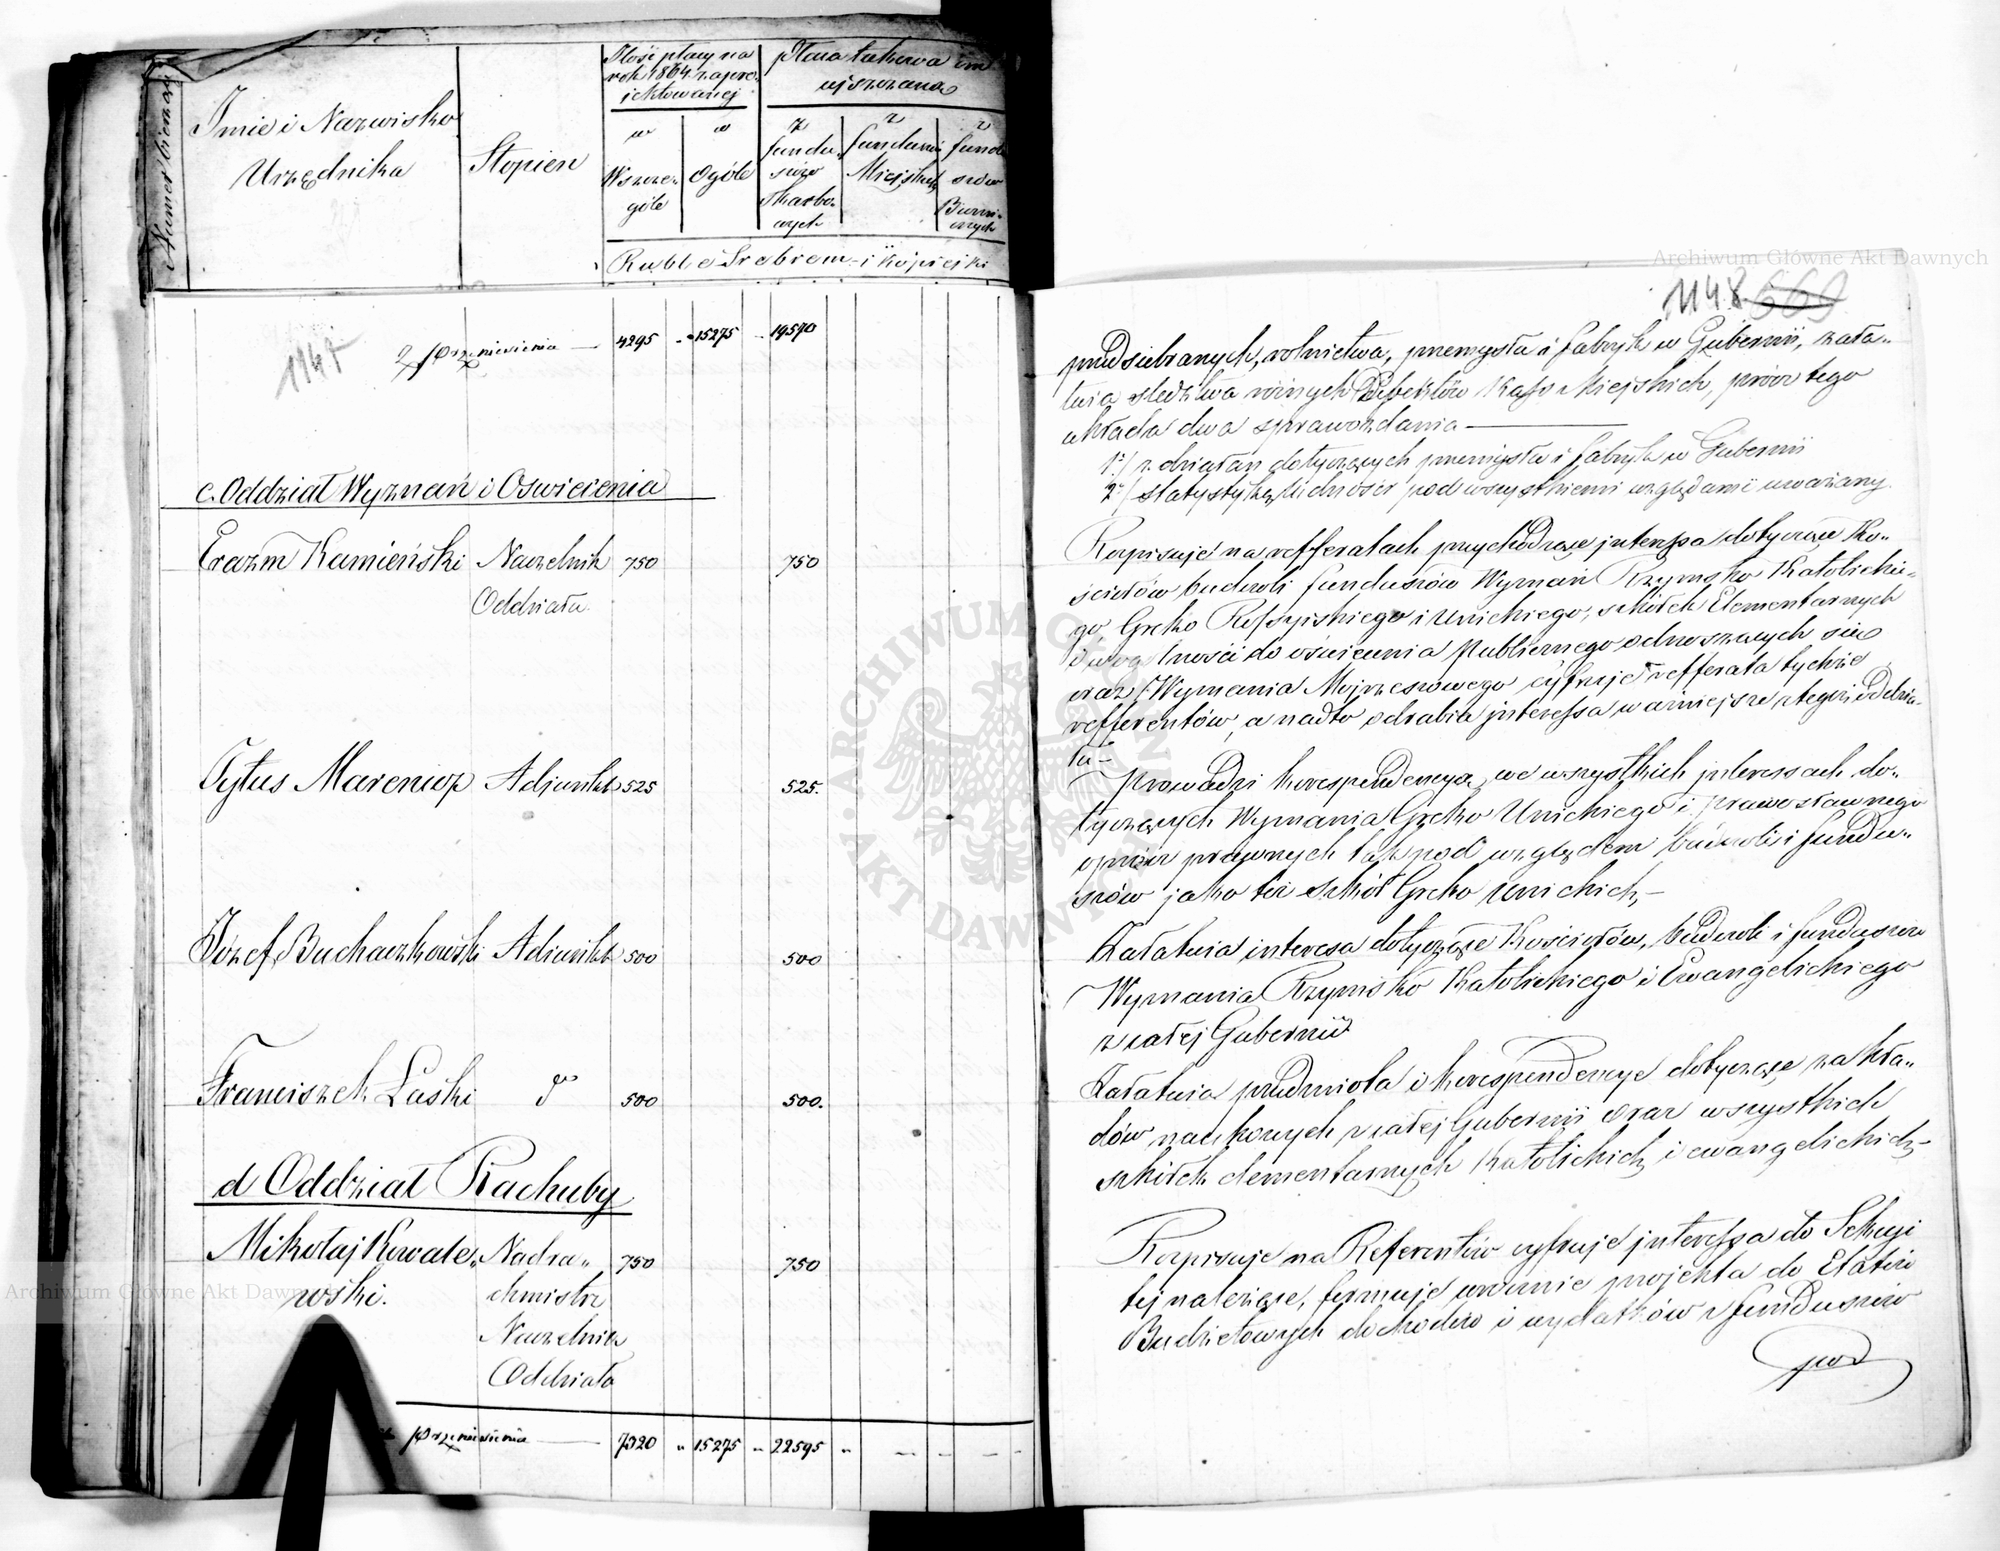 Numer bieżący
Imie i Nazwisko
Urzędnika
Stopień
Ilość płacy na
rok 1864 zapro-
jektowanej
płaca takowa
w
Wszcze-
góle
w
Ogóle
z
fundu-
szów
Skarbo-
wych
z
funduszów
Miejskich
z
fundu
szów
Ruble Srebrem i kopiejki
1147
Z przeniesienia — 4295 „ 15275 „ 19570
c. Oddział Wyznań i Oswiecenia
Erazm Kamieński Naczelnik 750 750
Oddziału.
Tytus Adjunkt 525 525.
Józef Buchaczkowski Adjunkt 500 500
Franciszek Laski do 500 500.
d Oddział Rachuby
Mikołaj Kowale„ Nadra„ 750 750
wski. chmistrz
Naczelnik
Oddziału
przeniesienia — 7320 „ 15275 „ 22595 „
1148 569
przedsiebranych, rolnictwa, przemysłu i fabryk w Gubernii, zała„
twia śledztwa różnych Defektów Kass Miejskich, prócz tego
układa dwa sprawozdania —
1o/ z działań dotyczących przemysłu i fabryk w Gubernii
2o/ statystykę ludności pod wszystkiemi względami uważany.
Rozpisuje na refferatach przychodzące interessa dotyczące Ko„
ściołów budowli funduszów Wyznań Rzymsko Katolickie„
go, Grcko Rossyiskiego i Unickiego, szkółek Elementarnych
i w ogólności do oświecenia Publicznego odnoszących sie
oraz Wyznania Mojżeszowego cyfruje refferata tychże
refferentów, a nadto odrabia interessa ważniejsze z tegoż oddzia„
łu —
Prowadzi korespondencyą we wszystkich interessach do„
tyczących Wyznania Grcko Unickiego i prawosławnego
oprócz prawnych tak pod względem budowli i fundu„
szów jako też szkół Grcko Unickich, —
Załatwia interesa dotyczące Kościołów, budowli i funduszów
Wyznania Rzymsko Katolickiego i Ewangelickiego
z całej Gubernii
Załatwia przedmiota i korespondencye dotyczące zakła„
dów naukowych z całej Gubernii oraz wszystkich
szkółek elementarnych Katolickich i ewangelickich —
Rozpisuje na Referentów cyfruje interessa do Sekcyi
tej należące, formuje wzornie projekta do Etatów
Budżetowych dochodów i wydatków z funduszów
pod
Archiwum Główne Akt Dawnych
Archiwum Główne Akt Dawnych
ARCHIWUM GŁÓWNE AKT DAWNYCH